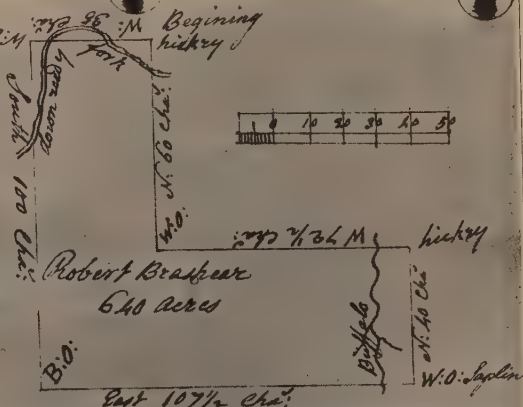 W: 35 Cha: W:
Begining
hickey
fork
South 100 Cha:
N: 60 Cha:
0 10 20 30 40 50
W 72 1/2 Cha:
hickey
Robert Brashear
640 acres
Buffalo
N. 40 Cha
B:O:
W:O: Saplin
East 107 1/2 Cha: